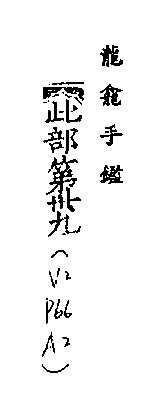 龍龕手鑑
此部第卅九(V2 P66 A2)